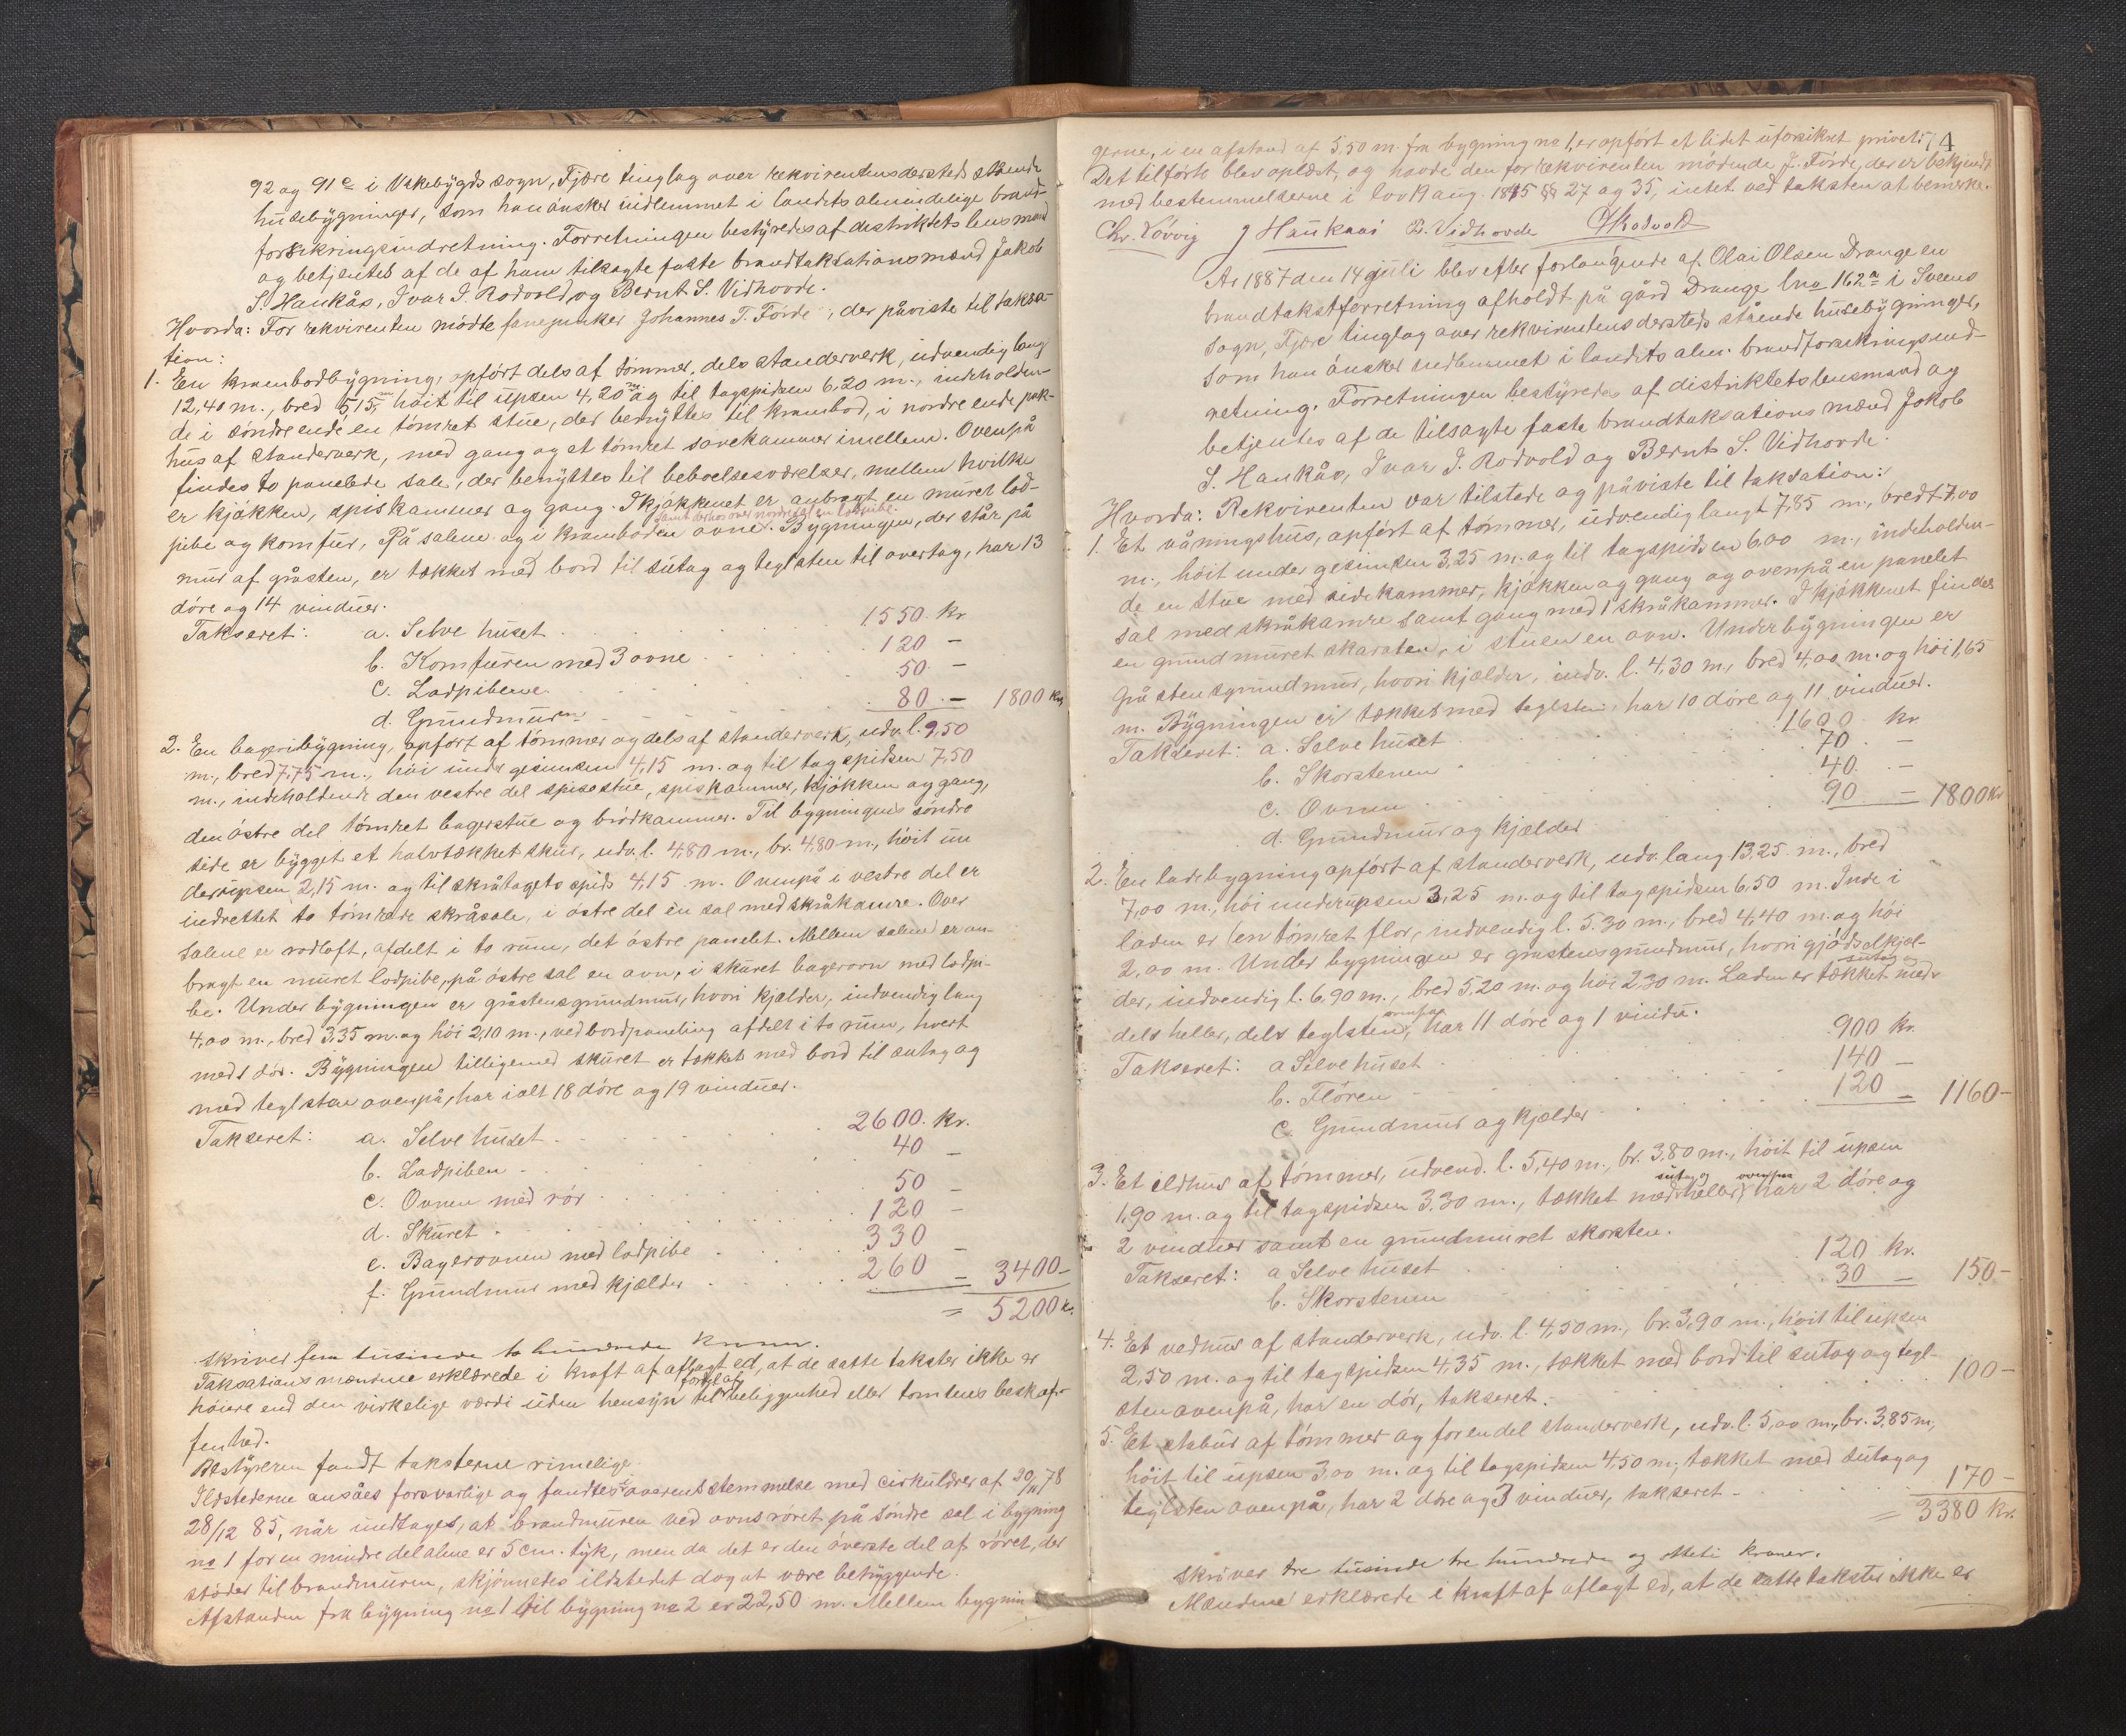 92 og 91 c i Vikebygds sogn, Fjære tinglag over rekvirentens dersteds stående
husebygninger, som han ønsker indlemmet i landets almindelige brand-
forsikringsindretning. Forretningen bestyredes af distriktets lensmand
og betjentes af de af ham tilsagte faste brandtaksationsmænd Jakob
S. Haukås, Ivar I. Rodvold og Bernt S. Vidhovde.
Hvorda: For rekvirenten mødte fanejunker Johannes T. Førde, der påviste til taksa-
tion:
1. En krambodbygning, opført dels af tømmer, dels standerverk, udvendig lang
12,40 m., bred 5,15 m, høit til upsen 4,20 m og til tagspidsen 6,20 m., indeholden-
de i søndre ende en tømret stue, der benyttes til krambod, i nordre ende pak-
hus af standerverk, med gang og et tømret sovekammer imellem. Ovenpå
findes to panelede sale, der benyttes til beboelsesværelser, mellem hvilke
er kjøkken, spiskammer og gang. I kjøkkenet er anbragt en muret lod-
samt derhos over nordre sal en lodpibe.
pibe og komfur, På salene og i kramboden ovne. Bygningen, der står på
mur af gråsten, er tækket med bord til sutag og teglsten til overtag, har 13
døre og 14 vinduer.
Takseret: a. Selve huset . . . 1550 kr
b. Komfuren med 3 ovne . . . 120 —
c. Lodpiberne . . . 50 —
d. Grundmuren . . . 80 — 1800 kr
2. En bageribygning, opført af tømmer og dels af standerverk, udv. l. 9,50
m., bred 7,75 m., høi under gesimsen 4,15 m. og til tagspidsen 7,50
m., indeholdende den vestre del spisestue, spiskammer, kjøkken og gang,
den østre del tømret bagerstue og brødkammer. Til bygningens søndre
side er bygget et halvtækket skur, udv. l. 4,80 m., br. 4,80 m., høit un
der upsen 2,15 m. og til skråtagets spids 4,15 m. Ovenpå i vestre del er
indrettet to tømrede skråsale, i østre del en sal med skråkamre. Over
salene er rodloft, afdelt i to rum, det østre panelet. Mellem salene er an-
bragt en muret lodpibe, på østre sal en ovn, i skuret bagerovn med lodpi-
be. Under bygningen er gråstensgrundmur, hvori kjælder, indvendig lang
4,00 m., bred 3,35 m. og høi 2,10 m., ved bordpaneling afdelt i to rum, hvert
med 1 dør. Bygningen tilligemed skuret er tækket med bord til sutag og
med teglsten ovenpå, har ialt 18 døre og 19 vinduer.
Takseret: a. Selve huset . . . 2600 kr.
b. Lodpiben . . . 40 —
c. Ovnen med rør . . . 50 —
d. Skuret . . . 120 —
e. Bagerovnen med lodpibe . . . 330 —
f. Grundmur med kjælder . . . 260 — 3400 —
= 5200 k.
skriver fem tusinde to hundrede kroner.
Taksationsmændene erklærede i kraft af aflagt ed, at de satte takster ikke er
høiere end den virkelige værdi uden hensyn til beliggenhed eller tomtens beskaf-
fenhed.
Bestyreren fandt taksterne rimelige.
Ildstederne ansåes forsvarlige og fandtes i overensstemmelse med cirkulærer af 20/11 78
28/12 85, når undtages, at brandmuren ved ovnsrøret på søndre sal i bygning
no 1 for en mindre del alene er 5 cm. tyk, men da det er den øverste del af røret, der
støder til brandmuren, skjønnedes ildstedet dog at være betryggende.
Afstanden fra bygning no 1 til bygning no 2 er 22,50 m. Mellem bygnin
74
gerne, i en afstand af 5,50 m. fra bygning no 1, er opført et lidet uforsikret privet.
Det tilførte blev oplæst, og havde den for rekvirenten mødende J. Førde, der er bekjendt
med bestemmelserne i lov 19 aug. 1845 §§ 27 og 35, intet ved taksten at bemerke.
Chr. Vøvvig J Haukaas B. Vidhovde I Rodvold
År 1887 den 14 juli blev efter forlangende af Olai Olsen Drange en
brandtakstforretning afholdt på gård Drange lno 162 a i Sveens
sogn, Fjære tinglag over rekvirentens dersteds stående husebygninger,
som han ønsker indlemmet i landets alm. brandforsikringsind-
retning. Forretningen bestyredes af distriktets lensmand og
betjentes af de tilsagte faste brandtaksationsmænd Jakob
S. Haukås, Ivar I. Rodvold og Bernt S. Vidhovde.
Hvorda: Rekvirenten var tilstede og påviste til taksation:
1. Et våningshus, opført af tømmer, udvendig langt 7,85 m., bredt 7,00
m., høit under gesimsen 3,25 m. og til tagspidsen 6,00 m., indeholden-
de en stue med sidekammer, kjøkken og gang og ovenpå en panelet
sal med skråkamre samt gang med 1 skråkammer. I kjøkkenet findes
en grundmuret skorsten, i stuen en ovn. Under bygningen er
gråstensgrundmur, hvori kjælder, indv. l. 4,30 m., bred 4,00 m. og høi 1,65
m. Bygningen er tækket med teglsten, har 10 døre og 11 vinduer.
Takseret: a. Selve huset . . . 1600 kr
b. Skorstenen . . . 70 —
c. Ovnen . . . 40 —
d. Grundmur og kjælder . . . 90 — 1800 kr
2. En ladebygning opført af standerverk, udv. lang 13,25 m., bred
7,00 m., høi under upsen 3,25 m. og til tagspidsen 6,50 m. Inde i
laden er en tømret flor, indvendig l. 5,30 m., bred 4,40 m. og høi
2,00 m. Under bygningen er gråstensgrundmur, hvori gjødselkjel-
der, indvendig l. 6,90 m., bred 5,20 m. og høi 2,30 m. Laden er tækket med sutag
dels heller, dels teglsten ovenpaa, har 11 døre og 1 vindu.
Takseret: a Selve huset . . . 900 kr.
b. Fløren . . . 140 —
c. Grundmur og kjælder . . . 120 — 1160 —
3. Et ildhus af tømmer, udvend. l. 5,40 m., br. 3,80 m., høit til upsen
1,90 m. og til tagspidsen 3,30 m., tækket med sutag heller ovenpaa har 2 døre og
2 vinduer samt en grundmuret skorsten.
Takseret: a Selve huset . . . 120 kr.
b. Skorstenen . . . 30 — 150 —
4. Et vedhus af standerverk, udv. l. 4,50 m., br. 3,90 m., høit til upsen
2,50 m. og til tagspidsen 4,35 m., tækket med bord til sutag og tegl-
sten ovenpå, har en dør, takseret . . . 100 —
5. Et stabur af tømmer og for en del standerverk, udv. l. 5,00 m., br. 3,85 m,
høit til upsen 3,00 m. og til tagspidsen 4,50 m., tækket med sutag og
teglsten ovenpå, har 2 døre og 3 vinduer, takseret . . . 170 —
= 3380 kr.
skriver tre tusinde tre hundrede og otteti kroner.
Mændene erklærede i kraft af aflagt ed, at de satte takster ikke er